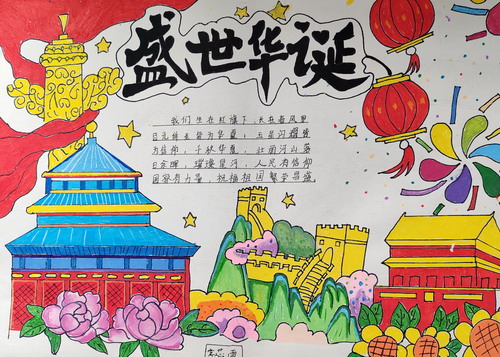 盛世华诞
我们生在红旗下，长在春风里
目光所至皆为华夏，五星闪耀皆
为信仰，千秋华夏，壮丽河山落
日余晖，璀璨星河，人民有信仰
国家有力量，祝福祖国繁荣昌盛